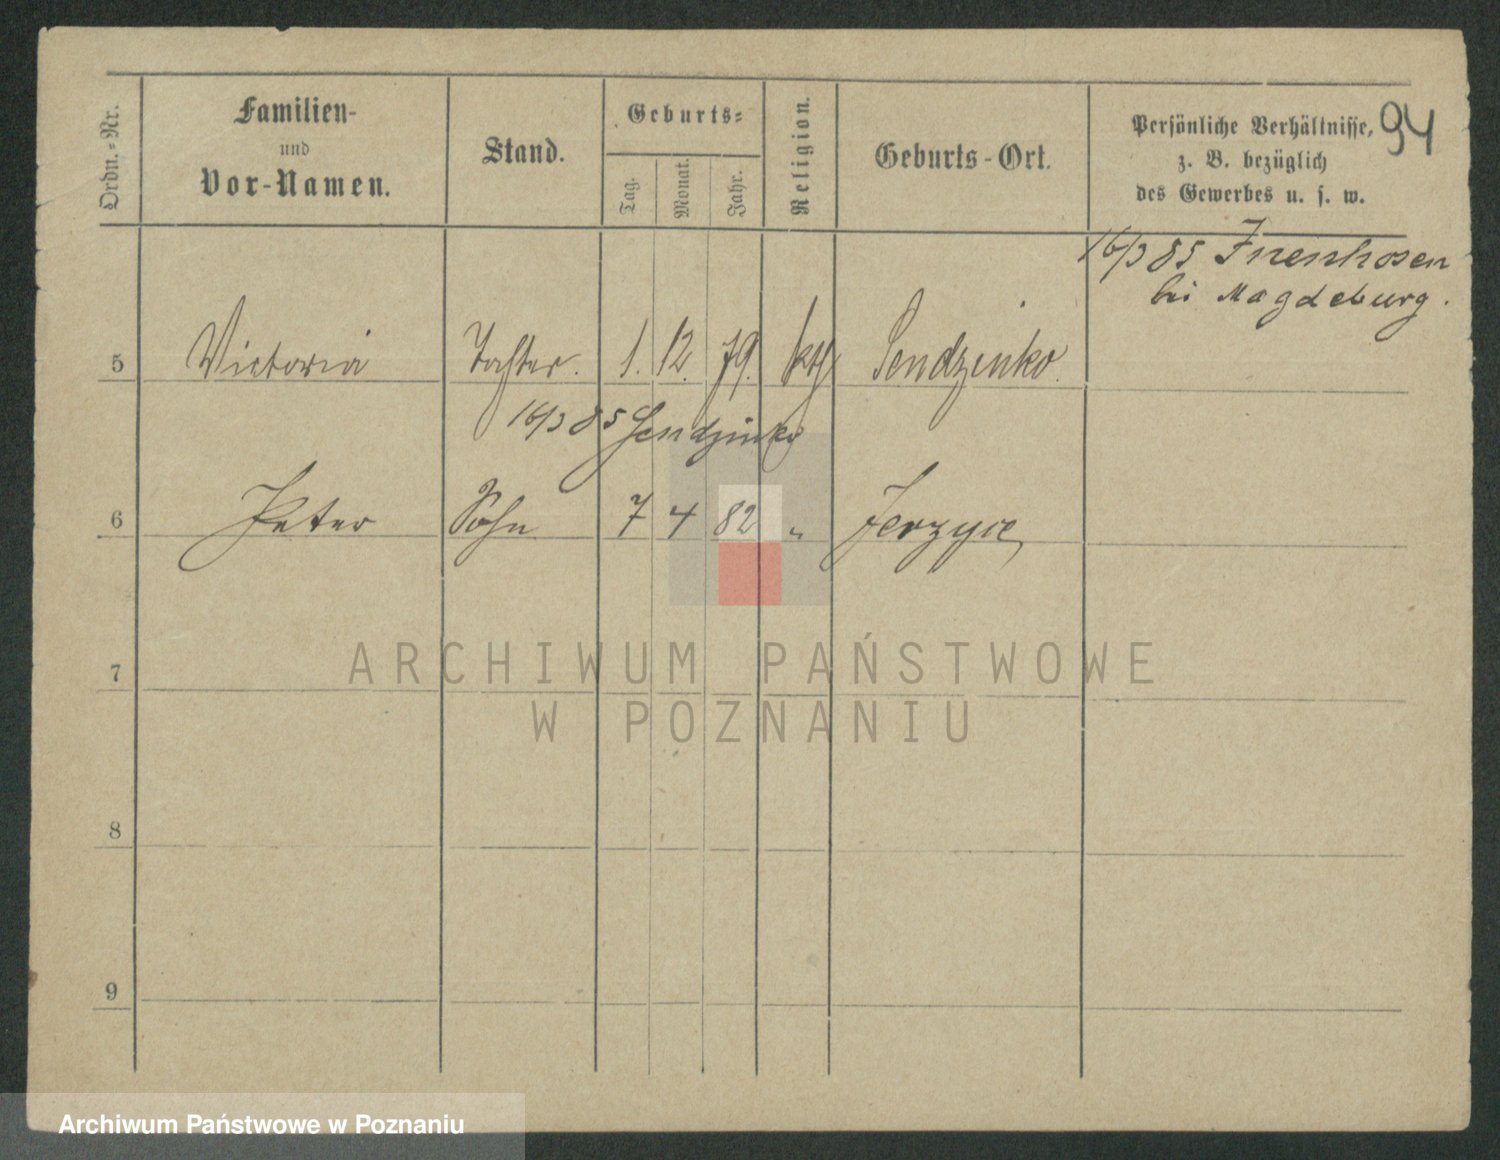 Ordn.-Nr.
Familien-
und
Vor-Namen.
Stand.
Geburts-
Tag.
Monat.
Jahr.
Religion.
Geburts-Ort.
Persönliche Verhältnisse,
z. B. bezüglich
des Gewerbes u. s. w.
94
16/3 85
bei Magdeburg.
5 Victoria Tochter. 1. 12. 79. kth Sendzinko.
16/3 85 Sendzinko
6 Peter Sohn 7 4 82 " Jerzyce
7
8
9
ARCHIWUM PAŃSTWOWE
W POZNANIU
Archiwum Państwowe w Poznaniu